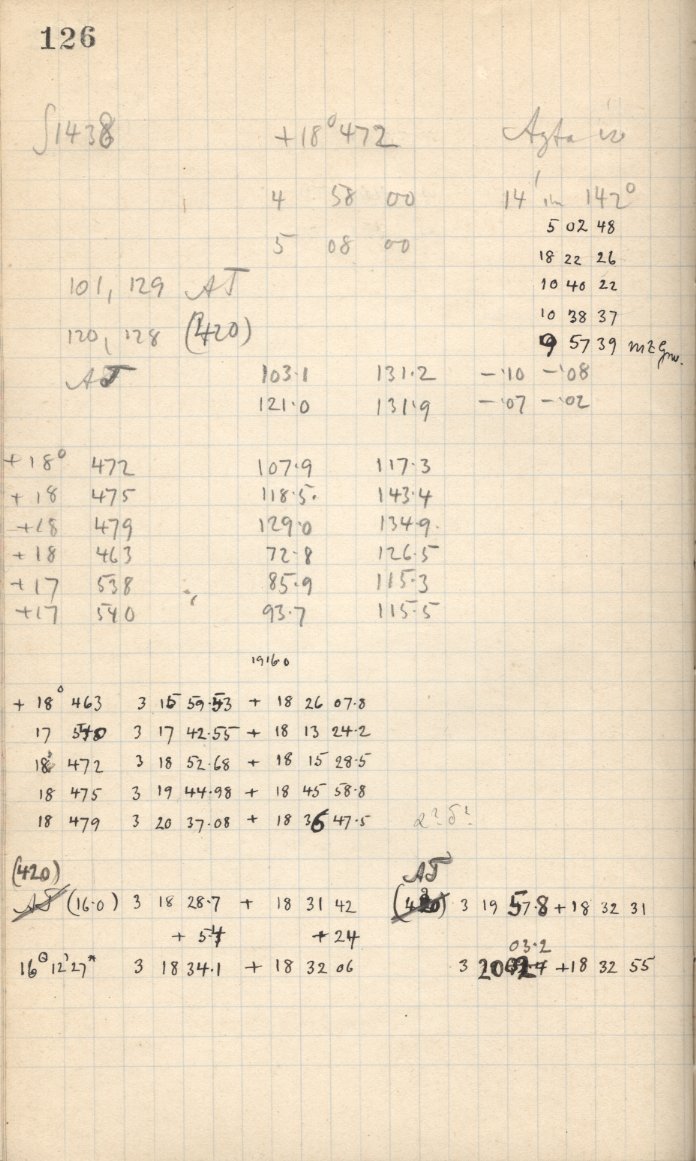 126
∫1438 +18° 472
4 58 00 14' in 142°
5 02 48
5 08 00
18 22 26
101, 129 AT
10 40 22
10 38 37
120, 128 (420)
9 57 39
AT 103.1 131.2 -.10 -.08
121.0 131.9 -.07 -.02
+18° 472 107.9 117.3
+18 475 118.5 143.4
+18 479 129.0 134.9
+18 463 72.8 126.5
+17 538 85.9 115.3
+17 540 93.7 115.5
1916.0
+18° 463 3 15 59.53 + 18 26 07.8
17 540 3 17 42.55 + 18 13 24.2
18 472 3 18 52.68 + 18 15 28.5
18 475 3 19 44.98 + 18 45 58.8
18 479 3 20 37.08 + 18 36 47.5 α? δ?
(420) AT
AT (16.0) 3 18 28.7 + 18 31 42 (420) 3 19 57.8 +18 32 31
+ 5.4 +24
03.2
16ᵃ 12' 27" 3 18 34.1 + 18 32 06 3 20 +18 32 55